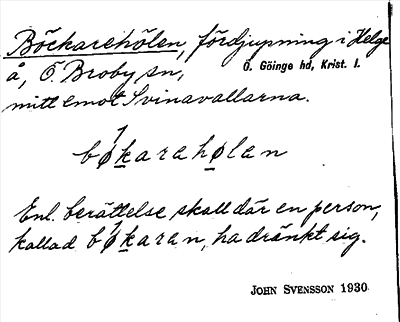 Böckarehölen, fördjupning i Helge
å, Ö. Broby sn, Ö. Göinge hd, Krist. l.
mitt emot Svinavallarna.
bø̀karahølan
Enl. berättelse skall där en person,
kallad bø̀karan, ha dränkt sig.
JOHN SVENSSON 1930